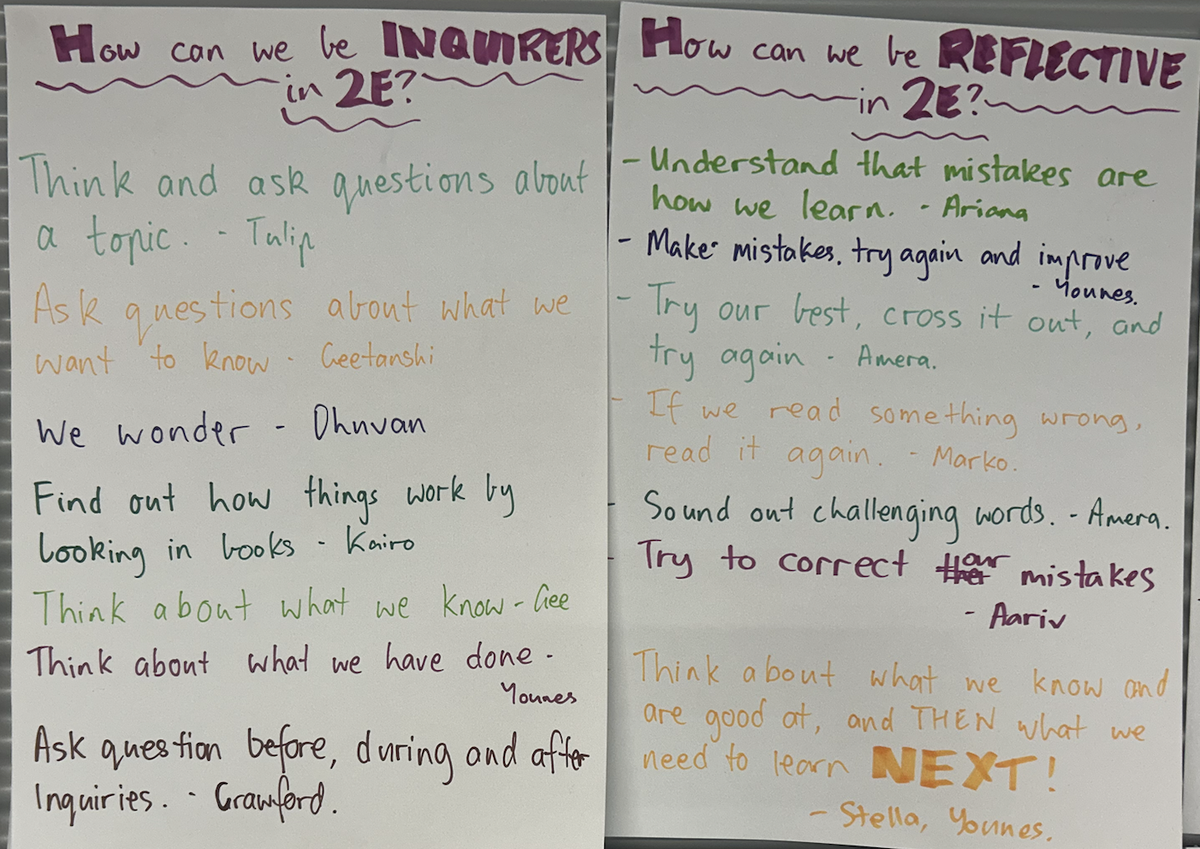 How can we be INQUIRERS
in 2E?
Think and ask questions about
a topic. - Tulip
Ask questions about what we
want to know - Geetanshi
We wonder - Dhruvan
Find out how things work by
looking in books - Kairo
Think about what we know - Gee
Think about what we have done -
Younes
Ask question before, during and after
Inquiries. - Crawford.
How can we be REFLECTIVE
in 2E?
- Understand that mistakes are
how we learn. - Ariana
- Make mistakes, try again and improve
- Younes.
- Try our best, cross it out, and
try again - Amera.
- If we read something wrong,
read it again. - Marko.
- Sound out challenging words. - Amera.
- Try to correct our mistakes
- Aariv
Think about what we know and
are good at, and THEN what we
need to learn NEXT!
- Stella, Younes.